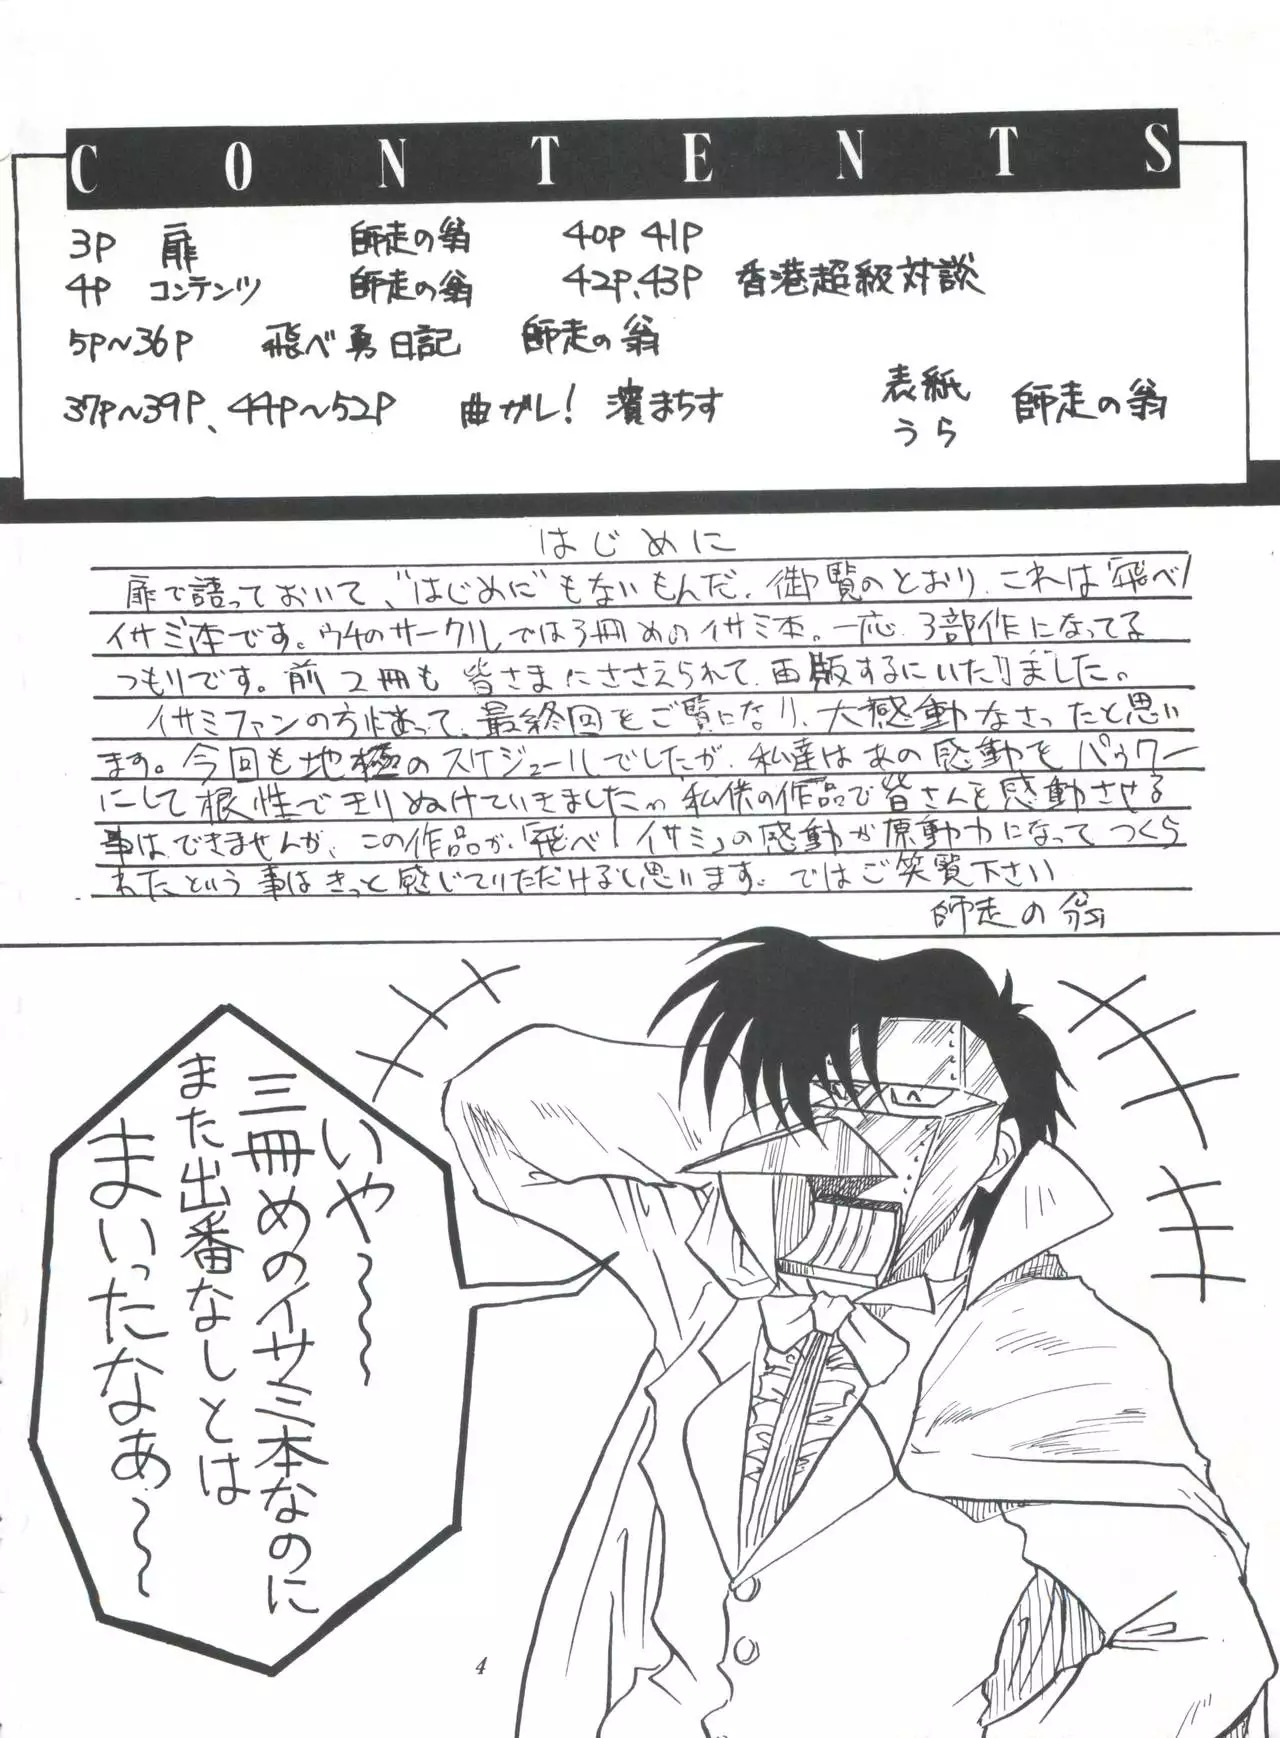 CONTENTS
3P 扉 師走の翁
4P コンテンツ 師走の翁
5P～36P 飛べ勇日記 師走の翁
37P～39P、44P～52P 曲ガレ! 濱まちす
40P 41P
42P、43P 香港超級対談
表紙
うら 師走の翁
はじめに
扉で語っておいて、"はじめに"もないもんだ。御覧のとおり、これは「飛べ!
イサミ本です。ウチのサークルでは3冊めのイサミ本。一応、3部作になってる
つもりです。前2冊も皆さまにささえられて、再版するにいたりました。
イサミファンの方にあって、最終回をご覧になり、大感動なさったと思い
ます。今回も地極のスケジュールでしたが、私達はあの感動をパゥワー
にして根性できりぬけていきました。私供の作品で皆さんを感動させる
事はできませんが、この作品が、「飛べ!イサミ」の感動が原動力になってつくら
れたという事はきっと感じていただけると思います。ではご笑覧下さい
師走の翁
いや～～
三冊めのイサミ本なのに
また出番なしとは
まいったなあ～～
4